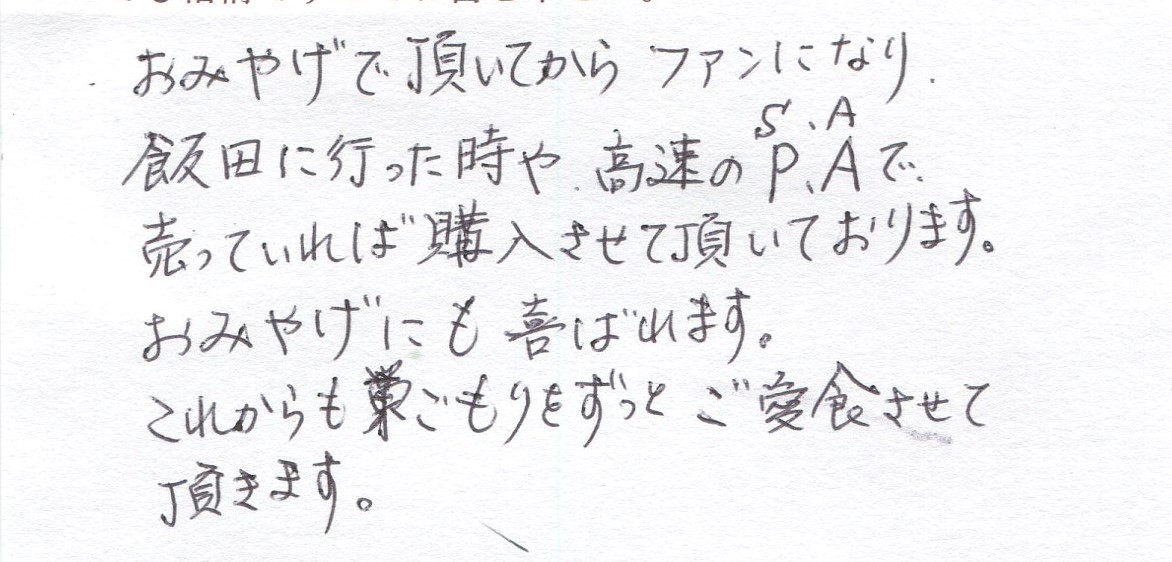 おみやげで頂いてからファンになり
S、A
飯田に行った時や、高速のP、Aで、
売っていれば購入させて頂いております。
おみやげにも喜ばれます。
これからも巣ごもりをずっとご愛食させて
頂きます。